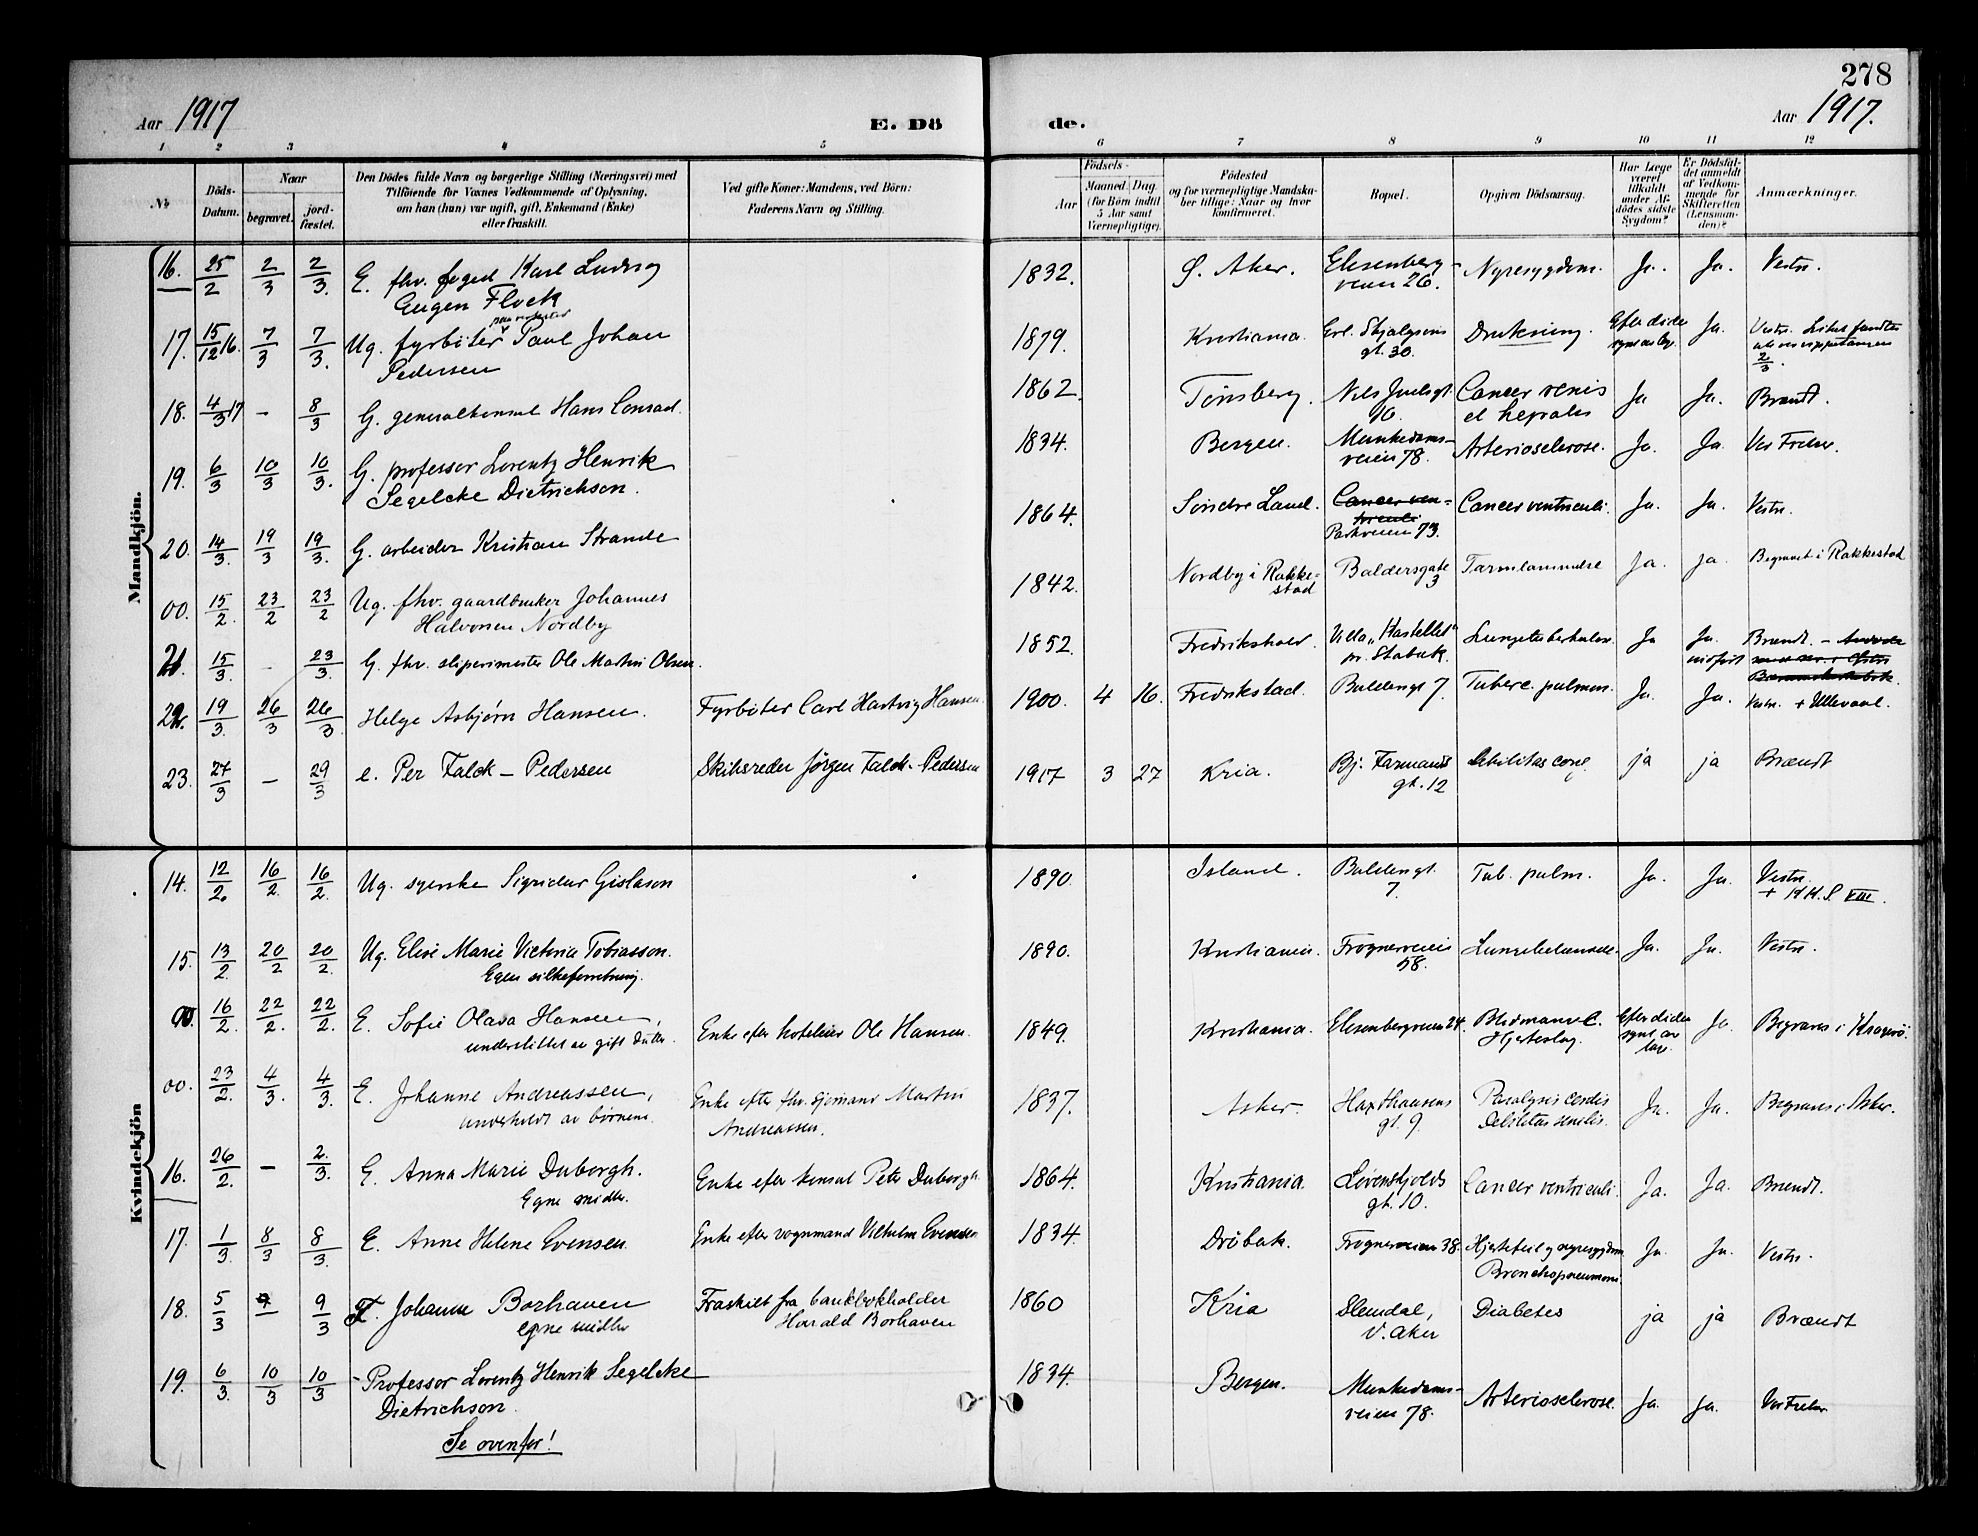 278
Aar 1917
E. Dö
de.
Aar 1917.
1 2 3 4 5 6 7 8 9 10 11 12
No
Döds-Datum.
Naar
begravet.
jord-fæstet.
Den Dödes fulde Navn og borgerlige Stilling (Næringsvei) med
Tilföiende for Voxnes Vedkommende af Oplysning,
om han (hun) var ugift, gift, Enkemand (Enke)
eller fraskilt.
Ved gifte Koner: Mandens, ved Börn:
Faderens Navn og Stilling.
Födsels-
Aar
Maaned. Dag.
(for Börn indtil
5 Aar samt
Værnepligtige).
Födested
og for værnepligtige Mandska-
ber tillige: Naar og hvor
konfirmeret.
Bopæl.
Opgiven Dödsaarsag.
Har Læge
været
tilkaldt
under Af-
dödes sidste
Sygdom?
Er Dödsfal-
det anmeldt
af Vedkom-
mende for
Skifteretten
(Lensman-
den)?
Anmærkninger.
Mandkjön.
16. 25/2 2/3 2/3. E. fhv. foged Karl Ludvig
Eugen Flock
1832. Ö. Aker. Elisenberg-
veien 26. Nyresygdom. Ja. Ja. Vestre.
17. 15/12 16. 7/3 7/3. Ug. fyrbøter Paul Johan
Pedersen
1879. Kristiania. Erl. Skjalgsøns
gt. 30. Drukning. Efter døde
Ja. Vestre. Liket fundet
2/3.
18. 4/3 17 — 8/3 G. generalkonsul Hans Conrad.
1862. Tønsberg. Nils Juelsgt
Cancer renis
et hepatis Ja Ja. Brændt.
19. 6/3 10/3 10/3. G. professor Lorentz Henrik
Segelcke Dietrichson.
1834. Bergen. Munkedams-
veien 78. Arteriosclerose. Ja. Ja. Vor Frelser
20. 14/3. 19/3 19/3. G. arbeider Kristian Strande
1864. Søndre Land. Cancer ven-
triculi
Parkveien 73. Cancer ventriculi. Ja. Ja. Vestre.
00. 15/2. 23/2 23/2 Ug. fhv. gaardbruker Johannes
Halvorsen Nordby
1842. Nordby i Rakke-
stad Baldersgate
3 Tarmlammelse Ja. ja. Begravet i Rakkestad
21. 15/3. - 23/3. G. fhv. sliperimester Ole Martin Olsen.
1852. Fredrikshald. Villa "Kastellet"
pr. Stabæk. Lungetuberkulose. Ja Ja. Brændt. -
22. 19/3. 26/3 26/3 Helge Asbjørn Hansen. Fyrbøter Carl Hartvig Hansen.
1900. 4 16. Fredrikstad. Baldersgt 7. Tuberc. pulmon. Ja. Ja. Vestre. + Ullevaal.
23. 27/3 — 29/3 e. Per Falck-Pedersen Skibsreder Jörgen Falck-Pedersen
1917 3 27 Kria. Bj. Farmands
gt. 12 Debilitas cong. ja ja Brændt
Kvindekjön
14. 12/2. 16/2. 16/2. Ug. syerske Sigridur Gislason
1890. Island. Baldersgt.
7. Tub. pulm. Ja. Ja. Vestre.
+ K.K.S. VIII.
15. 13/2. 20/2 20/2. Ug. Elise Marie Victoria Tobiasson.
Egen silkeforretning.
1890. Kristiania. Frognerveien
58. Lungebetændelse. Ja. Ja. Vestre.
00. 16/2. 22/2. 22/2. E. Sofie Olava Hansen,
understøttet av gift datter. Enke efter hotelleier Ole Hansen.
1849. Kristiania. Elisenbergveien 24. Blodmangel.
Hjerteslag. Efter døde
synt av
læge. Ja. Begraves i Kragerö.
00. 23/2. 4/3. 4/3. E. Johanne Andreassen,
underholdt av børnene. Enke efter fhv. sjømand Martin
Andreassen.
1837. Asker. Haxthausens
gt. 9. Paralysis cordis
Debilitas senilis. Ja. Ja. Begraves i Asker.
16. 26/2. — 2/3. E. Anna Marie Duborgh.
Egne midler. Enke efter konsul Peter Duborgh.
1864. Kristiania. Løvenskjolds
gt. 10. Cancer ventriculi. Ja. Ja. Brændt.
17. 1/3. 8/3 8/3. E. Anne Helene Evensen. Enke efter vognmand Vilhelm Evensen
1834. Drøbak. Frognerveien 38. Hjertefeil og nyresygdom
Bronchopneumoni. Ja. Ja. Vestre.
18. 5/3 — 9/3 F. Johanne Borhaven
egne midler Fraskilt fra bankbokholder
Harald Borhaven
1860 Kria Slemdal,
V. Aker Diabetes ja ja Brændt
19. 6/3. 10/3 10/3 - Professor Lorentz Henrik Segelcke
Dietrichson.
Se ovenfor!
1834. Bergen. Munkedams-
veien 78. Arteriosclerose. Ja. Ja. Vor Frelser